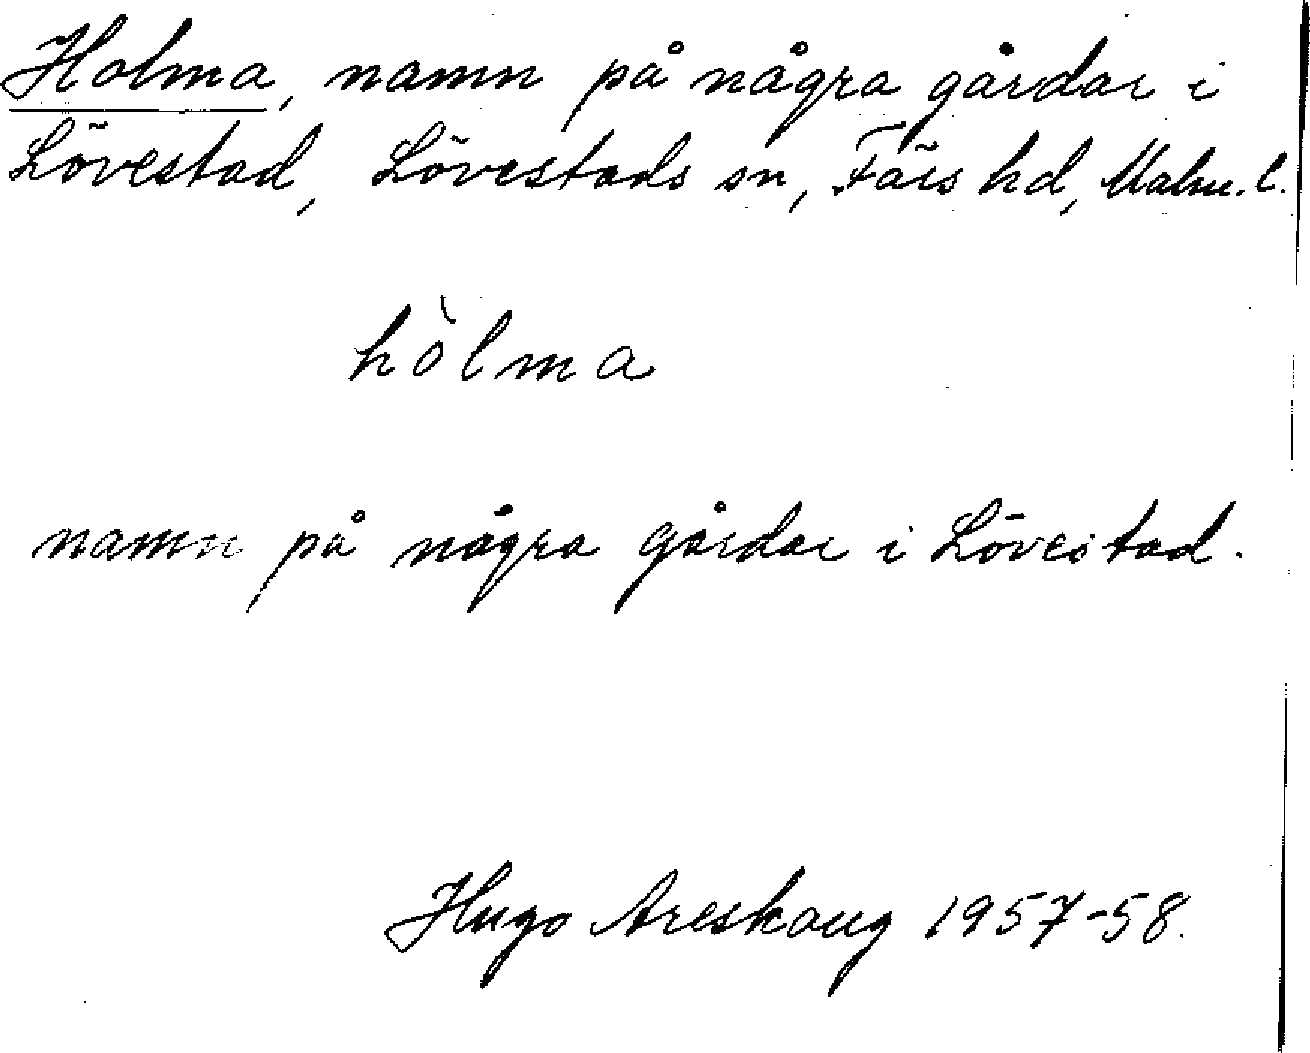 Holma, namn på några gårdar i
Lövestad, Lövestads sn, Färs hd, Malm. l.
hòlma
namn på några gårdar i Lövestad.
Hugo Areskoug 1957-58.